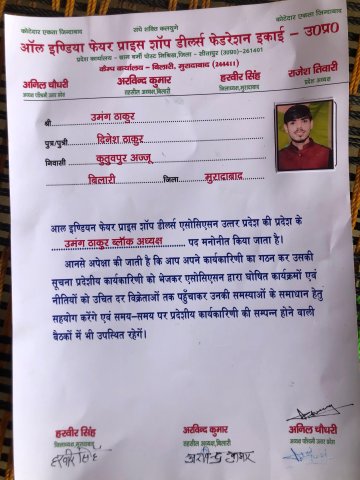 कोटेदार एकता जिन्दाबाद संघे शक्ति कलयुगे कोटेदार एकता जिन्दाबाद
ऑल इण्डिया फेयर प्राइस शॉप डीलर्स फेडरेशन इकाई - उ0प्र0
प्रदेश कार्यालय - ग्राम बर्मी पोस्ट मिश्रिख,जिला - सीतापुर (उ0प्र0)-261401
कैम्प कार्यालय - बिलारी, मुरादाबाद (244411)
अनिल चौधरी अरविन्द कुमार हरवीर सिंह राजेश तिवारी
अध्यक्ष पश्चिमी उत्तर प्रदेश तहसील अध्यक्ष,बिलारी जिलाध्यक्ष,मुरादाबाद प्रदेश अध्यक्ष
श्री उमंग ठाकुर
पुत्र/पुत्री दिनेश ठाकुर
निवासी कुतुवपुर अज्जू
बिलारी जिला मुरादाबाद
आल इण्डियन फेयर प्राइस शॉप डीलर्स एसोसिएसन उत्तर प्रदेश की प्रदेश के
उमंग ठाकुर ब्लॉक अध्यक्ष पद मनोनीत किया जाता है।
आनसे अपेक्षा की जाति है कि आप अपने कार्यकारिणी का गठन कर उसकी
सूचना प्रदेशीय कार्यकारिणी को भेजकर एसोसिएसन द्वारा घोषित कार्यक्रमों एवं
नीतियों को उचित दर विक्रेताओं तक पहुँचाकर उनकी समस्याओं के समाधान हेतु
सहयोग करेंगे एवं समय-समय पर प्रदेशीय कार्यकारिणी की सम्पन्न होने वाली
बैठकों में भी उपस्थित रहेगें।
हरवीर सिंह अरविन्द कुमार अनिल चौधरी
जिलाध्यक्ष,मुरादाबाद तहसील अध्यक्ष,बिलारी अध्यक्ष पश्चिमी उत्तर प्रदेश
हरवीर सिंह अरविन्द कुमार